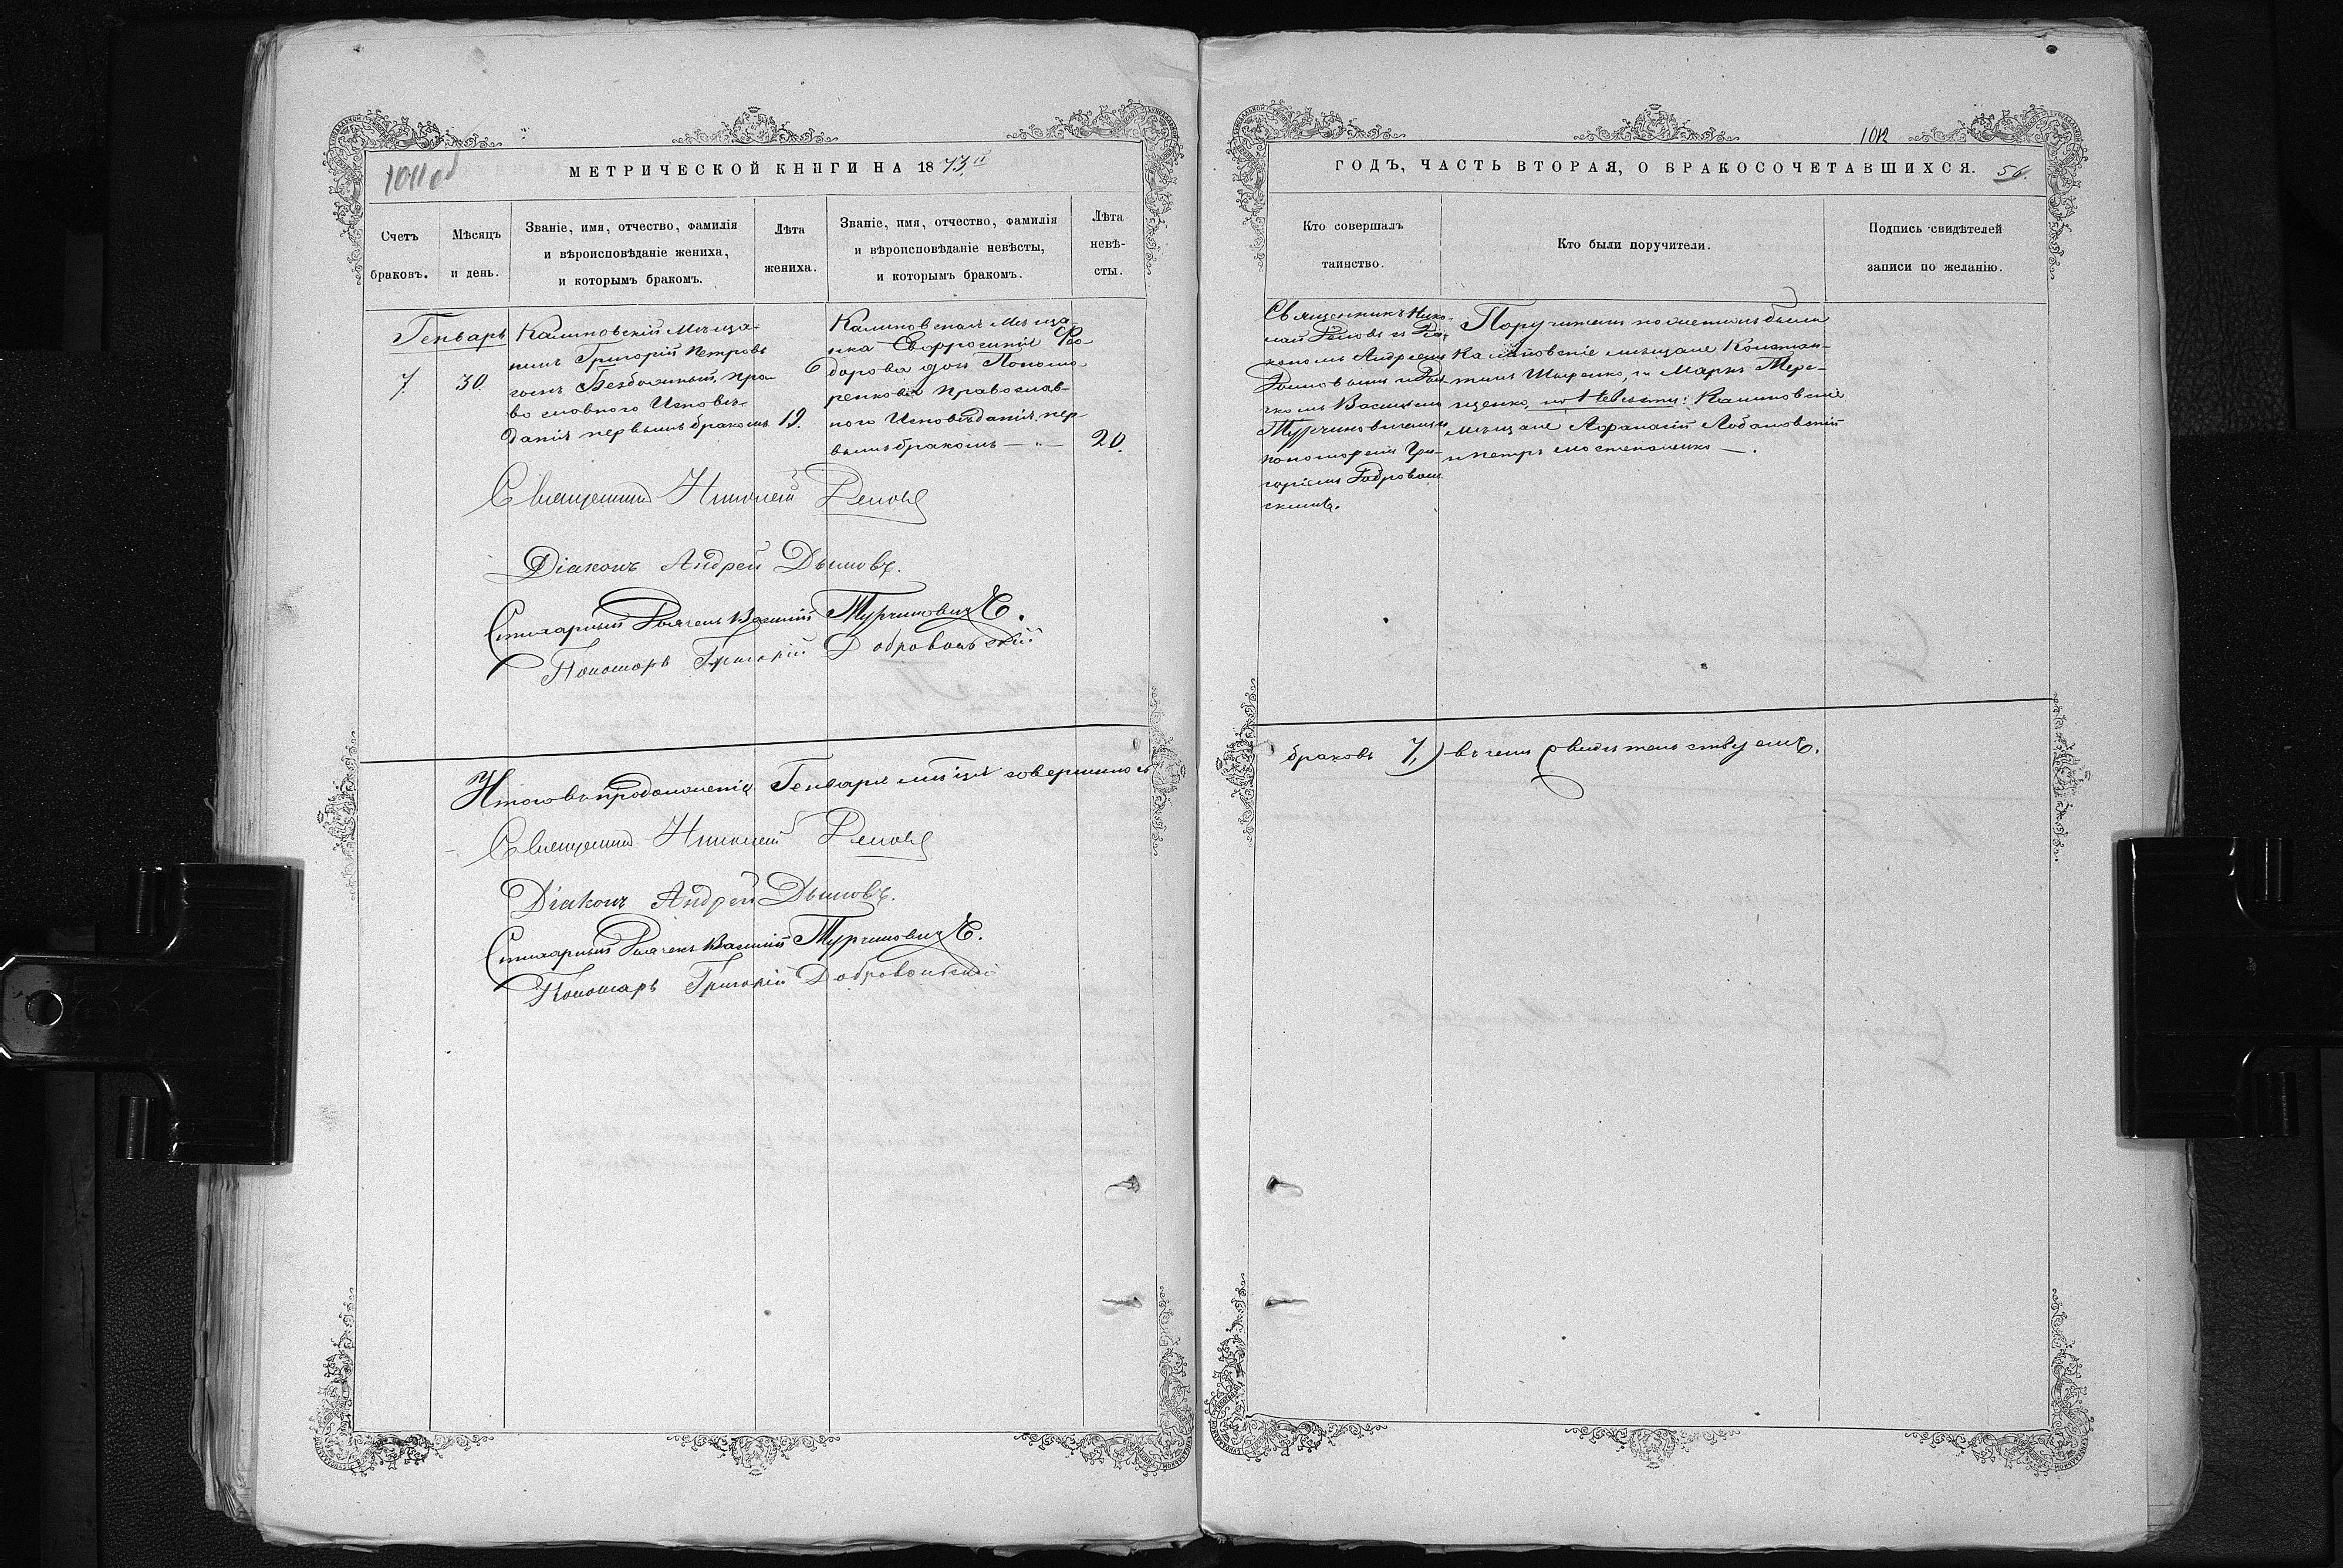 1011 об
МЕТРИЧЕСКОЙ КНИГИ НА 1873й
Счетъ браковъ.
Мѣсяцъ и день.
Званіе, имя, отчество, фамилія
и вѣроисповѣданіе жениха,
и которымъ бракомъ.
Лѣта жениха.
Званіе, имя, отчество, фамилія
и вѣроисповѣданіе невѣсты,
и которымъ бракомъ.
Лѣта невѣ-
сты.
Генварь
7.
30.
Калиновскій мѣща-
нинъ Григорій Петровъ
сынъ пра-
вославного Исповѣ-
данія первымъ бракомъ
19.
Калиновская мѣща-
нка Евфросинія Ѳео-
дорова доч Пономо-
ренкова православ-
ного Исповѣданія пер-
вымъ бракомъ — „ —
20.
Священникъ Николай
Діаконъ Андрей Дымовъ.
Стихарный Дьячекъ Василій Турчиновичъ.
Пономарь Григорій Добровольскій
Итого въ продолженіи Генваря мѣсяца совершилось
Священникъ Николай
Діаконъ Андрей Дымовъ.
Стихарный Дьячекъ Василій Турчиновичъ.
Пономарь Григорій Добровольскій
1012
ГОДЪ, ЧАСТЬ ВТОРАЯ, О БРАКОСОЧЕТАВШИХСЯ.
56.
Кто совершалъ
таинство.
Кто были поручители.
Подпись свидѣтелей
записи по желанію.
Священникъ Нико-
лай съ Діа-
кономъ Андреемъ
Дымовымъ и Дья-
чкомъ Василіемъ
Турчиновичемъ
пономаремъ Гри-
горіемъ Добровол
скимъ.
Поручители по женихѣ были
Калиновскіе мѣщане Констан-
тинъ и Маркъ Тере-
щенко, по Невѣсте: Калиновскіе
мѣщане Афанасій Лобановскій
и Петръ
браковъ 7,) въ чемъ свидѣтельствуемъ.